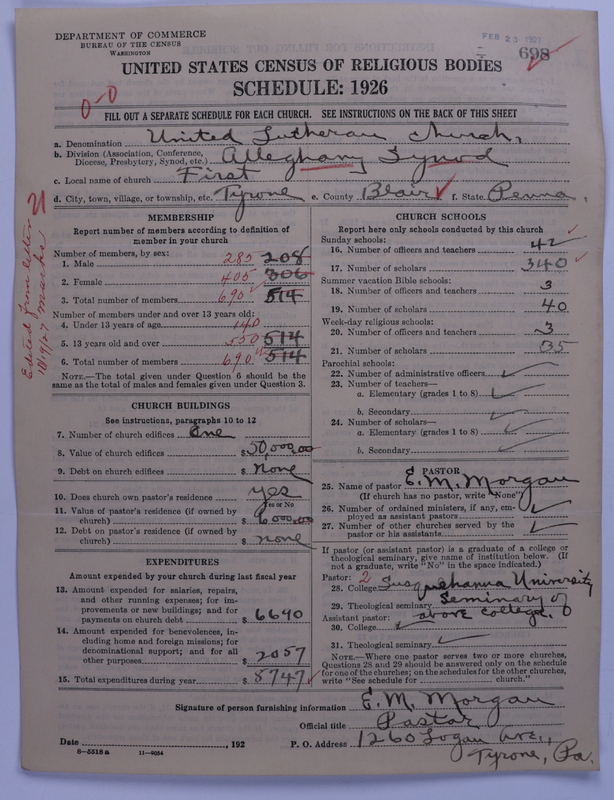 DEPARTMENT OF COMMERCE
BUREAU OF THE CENSUS
WASHINGTON
FEB 23 1927
698
UNITED STATES CENSUS OF RELIGIOUS BODIES
SCHEDULE: 1926
0-0
FILL OUT A SEPARATE SCHEDULE FOR EACH CHURCH. SEE INSTRUCTIONS ON THE BACK OF THIS SHEET
a. Denomination United Lutheran Church,
b. Division (Association, Conference, Diocese, Presbytery, Synod, etc.) Alleghany Synod
c. Local name of church First
d. City, town, village, or township, etc. Tyrone e. County Blair f. State Penna.
Edited from letter
MEMBERSHIP
Report number of members according to definition of
member in your church
Number of members, by sex:
1. Male 285 208
2. Female 405 306
3. Total number of members 690 514
Number of members under and over 13 years old:
4. Under 13 years of age 140
5. 13 years old and over 550 514
6. Total number of members 690 514
NOTE.—The total given under Question 6 should be the
same as the total of males and females given under Question 3.
CHURCH BUILDINGS
See instructions, paragraphs 10 to 12
7. Number of church edifices One
8. Value of church edifices $50,000.00
9. Debt on church edifices $ None
10. Does church own pastor's residence yes
Yes or No
11. Value of pastor's residence (if owned by
church) $6000.00
12. Debt on pastor's residence (if owned by
church) $ none
EXPENDITURES
Amount expended by your church during last fiscal year
13. Amount expended for salaries, repairs,
and other running expenses; for im-
provements or new buildings; and for
payments on church debt $ 6640
14. Amount expended for benevolences, in-
cluding home and foreign missions; for
denominational support; and for all
other purposes $ 2057
15. Total expenditures during year $ 8747
CHURCH SCHOOLS
Report here only schools conducted by this church
Sunday schools:
16. Number of officers and teachers 42
17. Number of scholars 340
Summer vacation Bible schools:
18. Number of officers and teachers 3
19. Number of scholars 40
Week-day religious schools:
20. Number of officers and teachers 3
21. Number of scholars 35
Parochial schools:
22. Number of administrative officers
23. Number of teachers—
a. Elementary (grades 1 to 8)
b. Secondary
24. Number of scholars—
a. Elementary (grades 1 to 8)
b. Secondary
PASTOR
25. Name of pastor E. M. Morgan
(If church has no pastor, write "None")
26. Number of ordained ministers, if any, em-
ployed as assistant pastors
27. Number of other churches served by the
pastor or his assistants
If pastor (or assistant pastor) is a graduate of a college or
theological seminary, give name of institution below. (If
not a graduate, write "No" in the space indicated.)
Pastor: 2
28. College Susquehanna University
29. Theological seminary Seminary of
above college.
Assistant pastor:
30. College
31. Theological seminary
NOTE.—Where one pastor serves two or more churches,
Questions 28 and 29 should be answered only on the schedule
for one of the churches; on the schedules for the other churches,
write "See schedule for church."
Signature of person furnishing information E. M. Morgan
Official title Pastor
Date , 192 P. O. Address 1260 Logan Ave.,
Tyrone, Pa.
8-5518a 11-9054